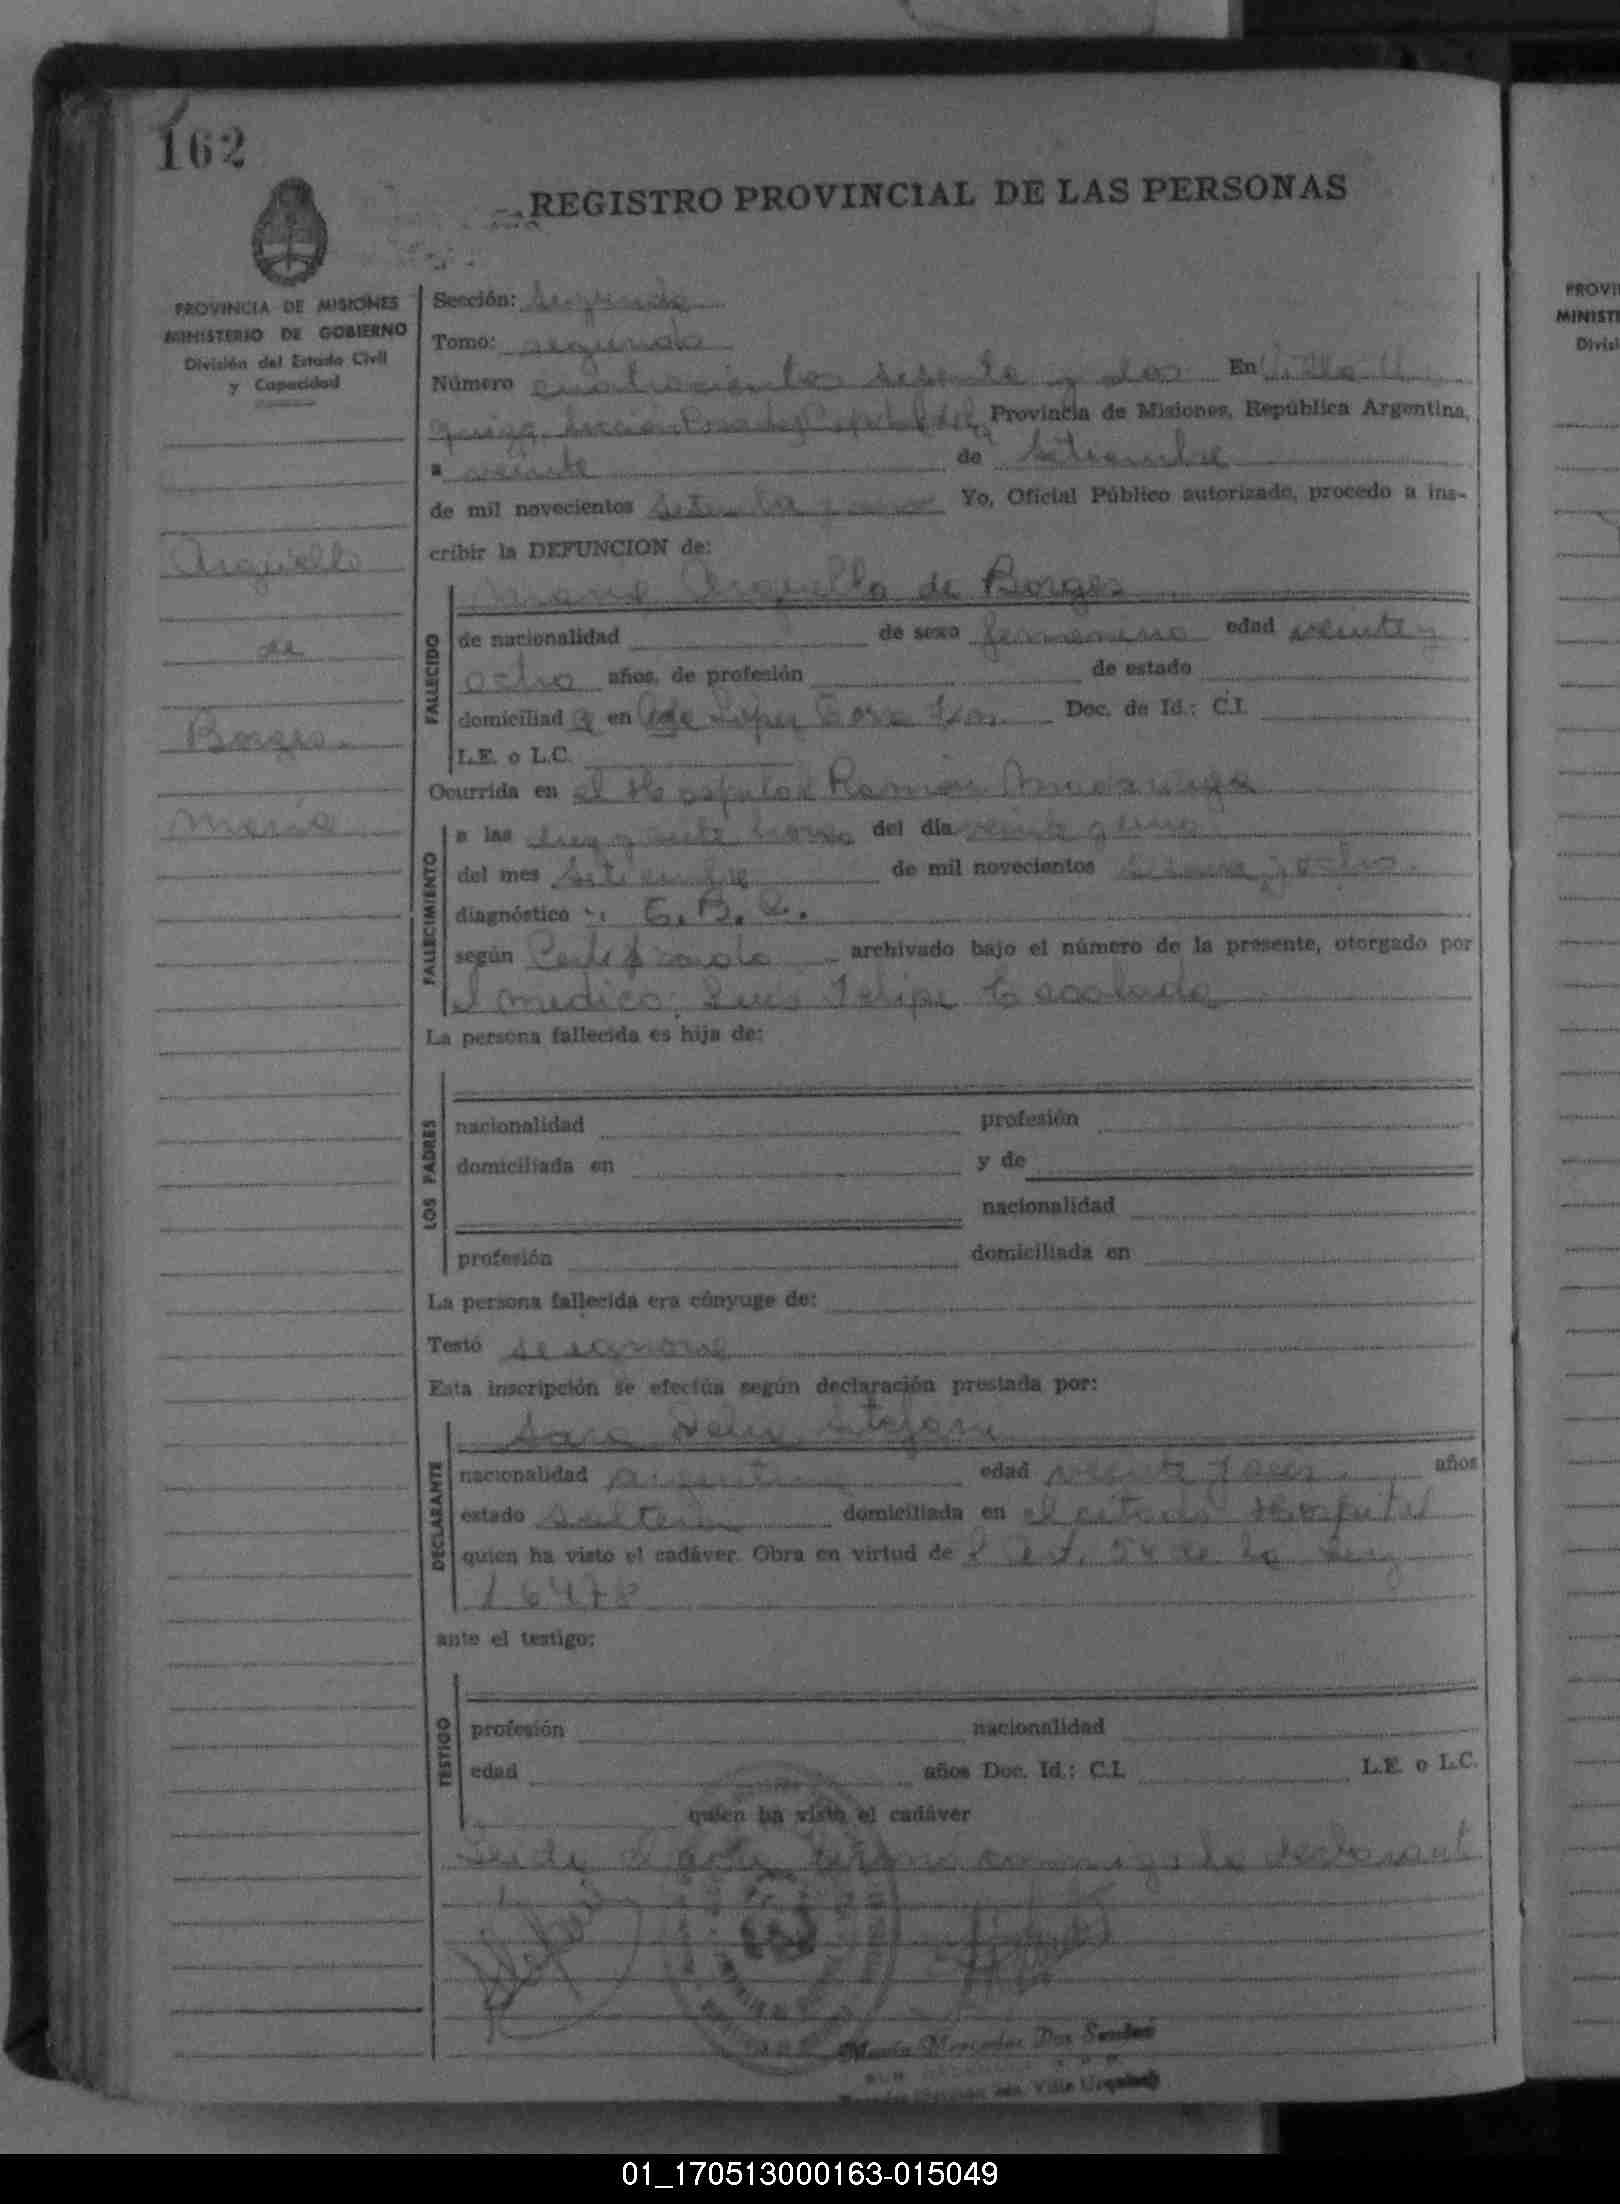 162
REGISTRO PROVINCIAL DE LAS PERSONAS
PROVINCIA DE MISIONES
MINISTERIO DE GOBIERNO
División del Estado Civil
y Capacidad
Arguello
de
Borges.
María
Sección: segunda
Tomo: segundo
Número cuatrocientos sesenta y dos En Villa U
quiza, Posadas Capital de la Provincia de Misiones, República Argentina,
a veinte de setiembre
de mil novecientos setenta y uno Yo, Oficial Público autorizado, procedo a ins-
cribir la DEFUNCION de:
FALLECIDO
María Arguello de Borges
de nacionalidad de sexo femenino edad veinte y
ocho años, de profesión de estado
domiciliad a en Lopez Doc. de Id.: C.I.
L.E. o L.C.
Ocurrida en el Hospital Ramón Madariaga
FALLECIMIENTO
a las diez y siete horas del día veinte y uno
del mes setiembre de mil novecientos y ocho.
diagnóstico :
según Certificado archivado bajo el número de la presente, otorgado por
el medico: Luis Felipe Escalada
La persona fallecida es hija de:
LOS PADRES
nacionalidad profesión
domiciliada en y de
nacionalidad
profesión domiciliada en
La persona fallecida era cónyuge de:
Testó se ignora
Esta inscripción se efectúa según declaración prestada por:
DECLARANTE
Sara
nacionalidad argentina edad veinte y seis años
estado soltera domiciliada en el citado Hospital
quien ha visto el cadáver. Obra en virtud de l Art. 54 de la Ley
16478
ante el testigo:
TESTIGO
profesión nacionalidad
edad años Doc. Id.: C.I. L.E. o L.C.
quien ha visto el cadáver
Leida el acta firma conmigo la declarant
María Mercedes Dos Santos
Villa Urquiza
PROVI
MINISTE
Divisi
01_170513000163-015049